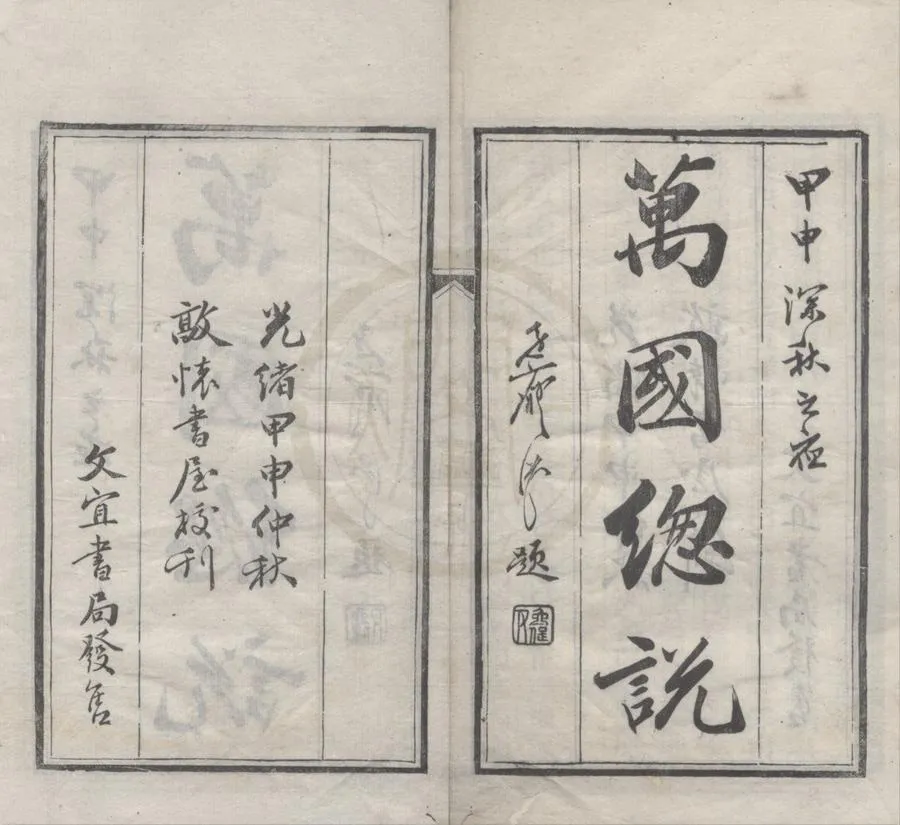 甲申深秋之夜
萬國總説
題
光緒甲申仲秋
敵懷書屋校刊
文宜書局發售